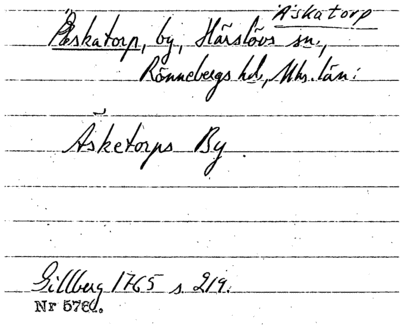 Äskatorp
Äskatorp, by, Härslövs sn,
Rönnebergs hd, Mhs. län:
Äsketorps By
Gillberg 1765 s. 219.
Nr 578.